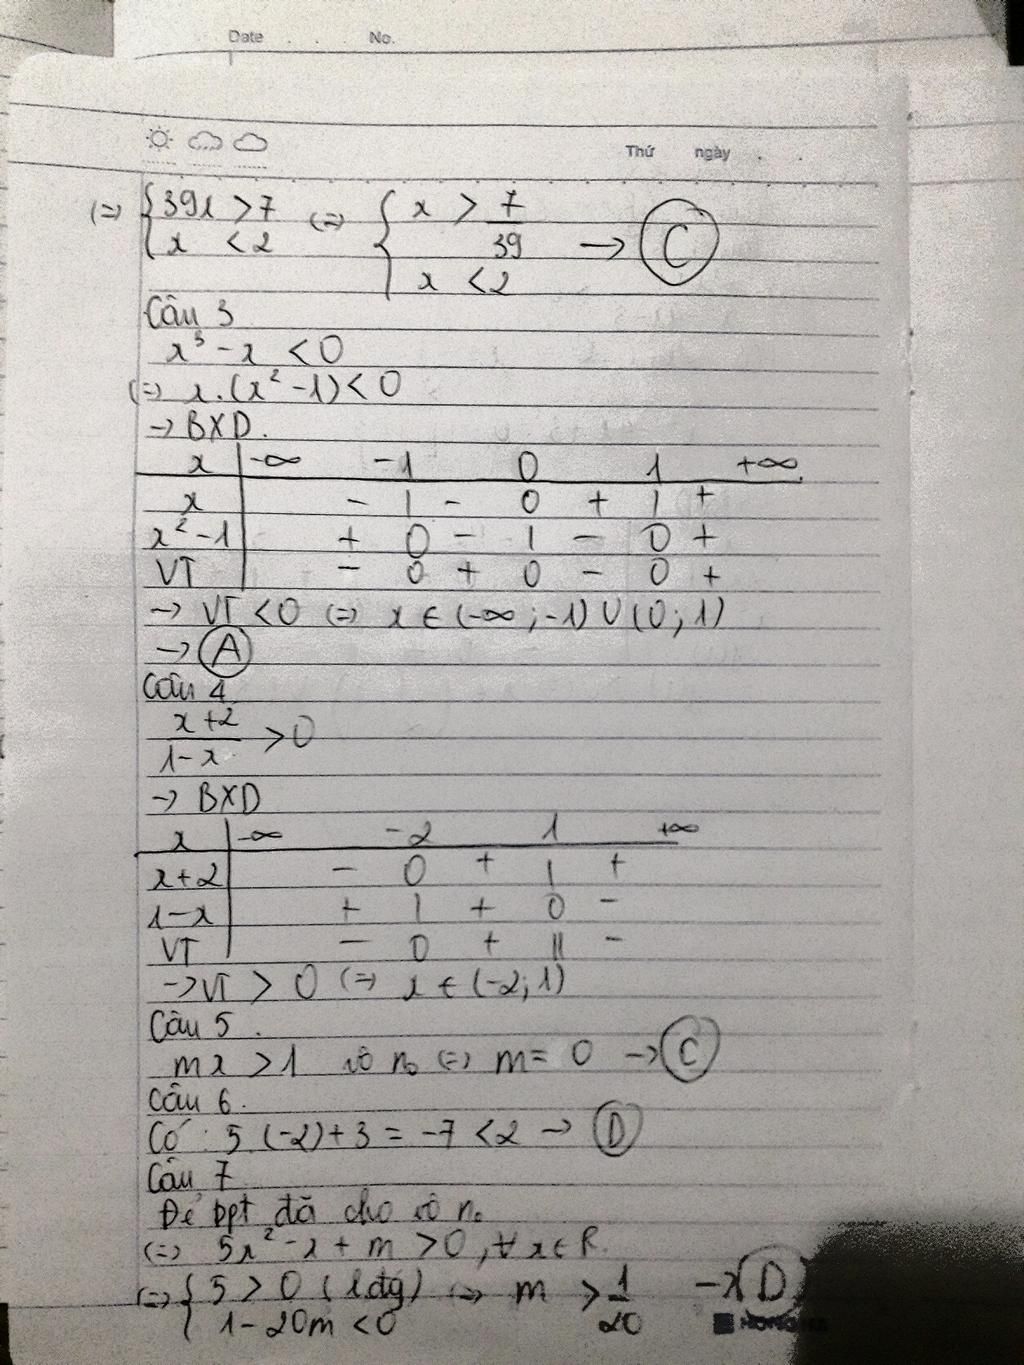 Date . . No.
Thứ ngày . .
(=) { 39x > 7 (=) { x > 7/39 → C
x < 2 x < 2
Câu 3
x³ - x < 0
(=) x.(x² - 1) < 0
→ BXD.
x | -∞ -1 0 1 +∞
x | - | - 0 + | +
x² - 1 | + 0 - | - 0 +
VT | - 0 + 0 - 0 +
→ VT < 0 (=) x ∈ (-∞; -1) ∪ (0; 1)
→ A
Câu 4
x+2/1-x > 0
→ BXD
x | -∞ -2 1 +∞
x+2 | - 0 + | +
1-x | + | + 0 -
VT | - 0 + || -
→ VT > 0 (=) x ∈ (-2; 1)
Câu 5.
mx > 1 vô n₀ (=) m = 0 → C
Câu 6.
Có : 5.(-2) + 3 = -7 < 2 → D
Câu 7
Để bpt đã cho vô n₀
(=) 5x² - x + m > 0, ∀x ∈ R.
(=) { 5 > 0 (lđg) (=) m > 1/20 → D
1 - 20m < 0